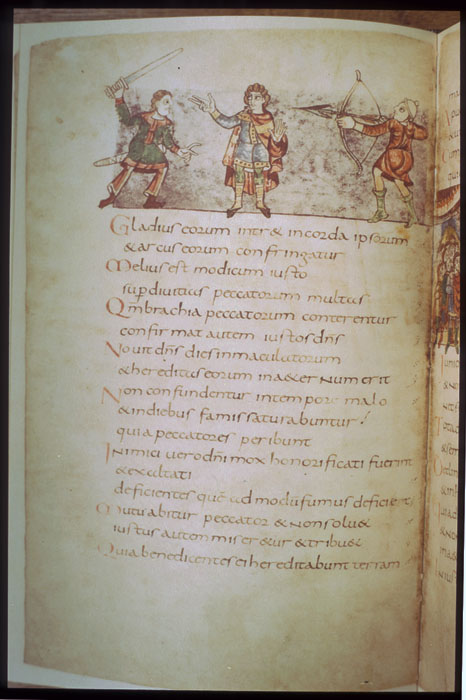 Gladius eorum intr& incorda ipsorum
& arcus eorum confringatur
Melius est modicum iusto
sup divitias peccatorum multas
Qm brachia peccatorum conterentur
confirmat autem iustos dns
Novit dns dies inmaculatorum
& hereditas eorum in a&ernum erit
Non confundentur intempore malo
& in diebus famis saturabuntur
quia peccatores peribunt
Inimici vero dni mox honorificati fuerint
& exaltati
deficientes quem ad modu fumus deficient
Mutuabitur peccator & non solu&
iustus autem miser&ur & tribu&
Quia benedicentes ei hereditabunt terram